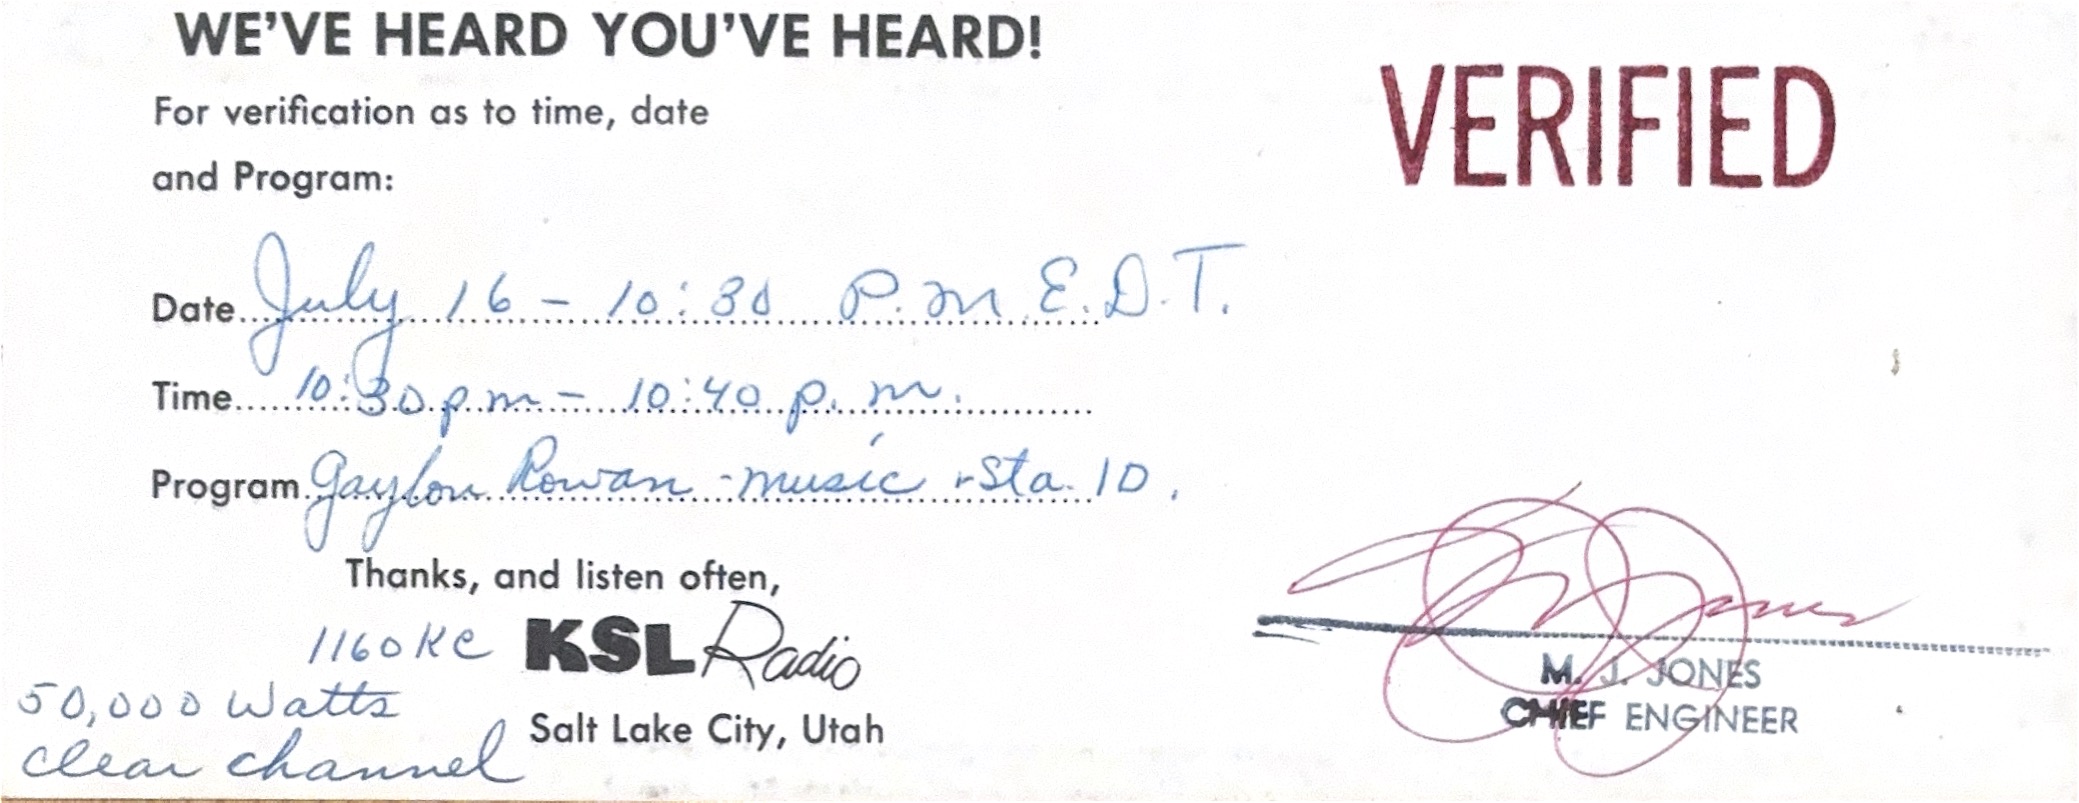 WE'VE HEARD YOU'VE HEARD!
VERIFIED
For verification as to time, date
and Program:
Date July 16 - 10:30 P.M E.D.T.
Time 10:30 p m - 10:40 p. m.
Program Gaylon Rowan - music - Sta. ID.
Thanks, and listen often,
1160 KC KSL Radio
50,000 Watts
clear channel
Salt Lake City, Utah
M J Jones
M. J. JONES
CHIEF ENGINEER